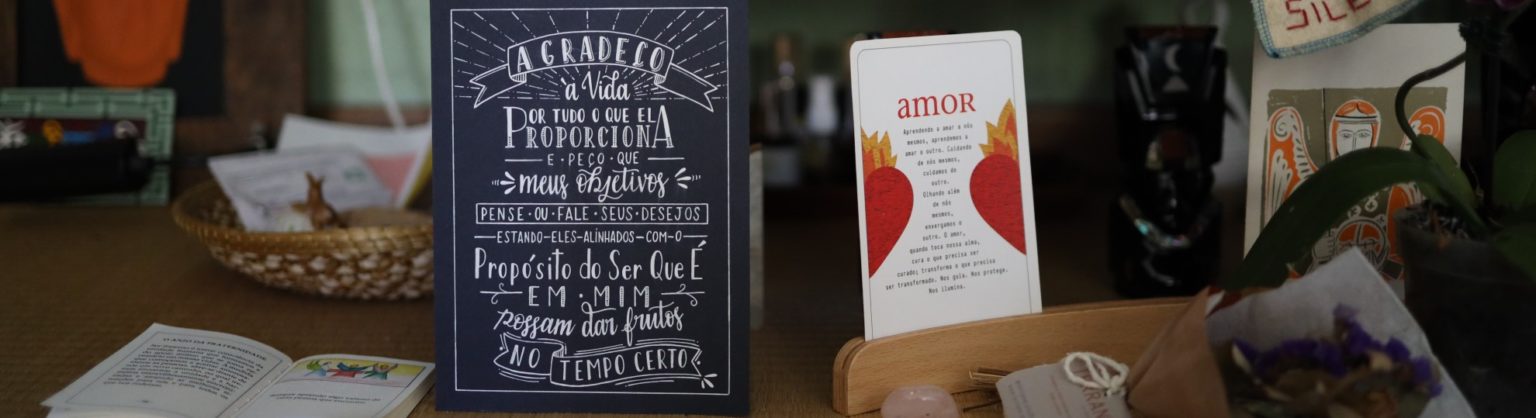 AGRADEÇO
à Vida
POR TUDO O QUE ELA
PROPORCIONA
E • PEÇO • QUE
meus objetivos
PENSE • OU • FALE • SEUS • DESEJOS
ESTANDO-ELES-ALINHADOS-COM-O
Propósito do Ser Que É
EM • MIM
possam dar frutos
NO TEMPO CERTO
amor
Aprendendo a amar a nós
mesmos, aprendemos a
amar o outro. Cuidando
de nós mesmos,
cuidamos do
outro.
Olhando além
de nós
mesmos,
enxergamos o
outro. O amor,
quando toca nossa alma,
cura o que precisa ser
curado; transforma o que precisa
ser transformado. Nos guia. Nos protege.
Nos ilumina.
O ANJO DA FRATERNIDADE